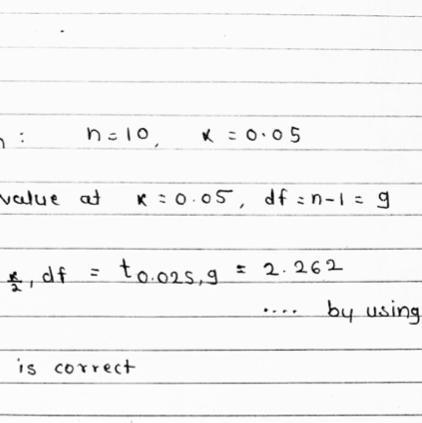 : n=10, α = 0.05
value at α = 0.05, df = n-1 = 9
α/2, df = t0.025,9 = 2.262
.... by using
is correct